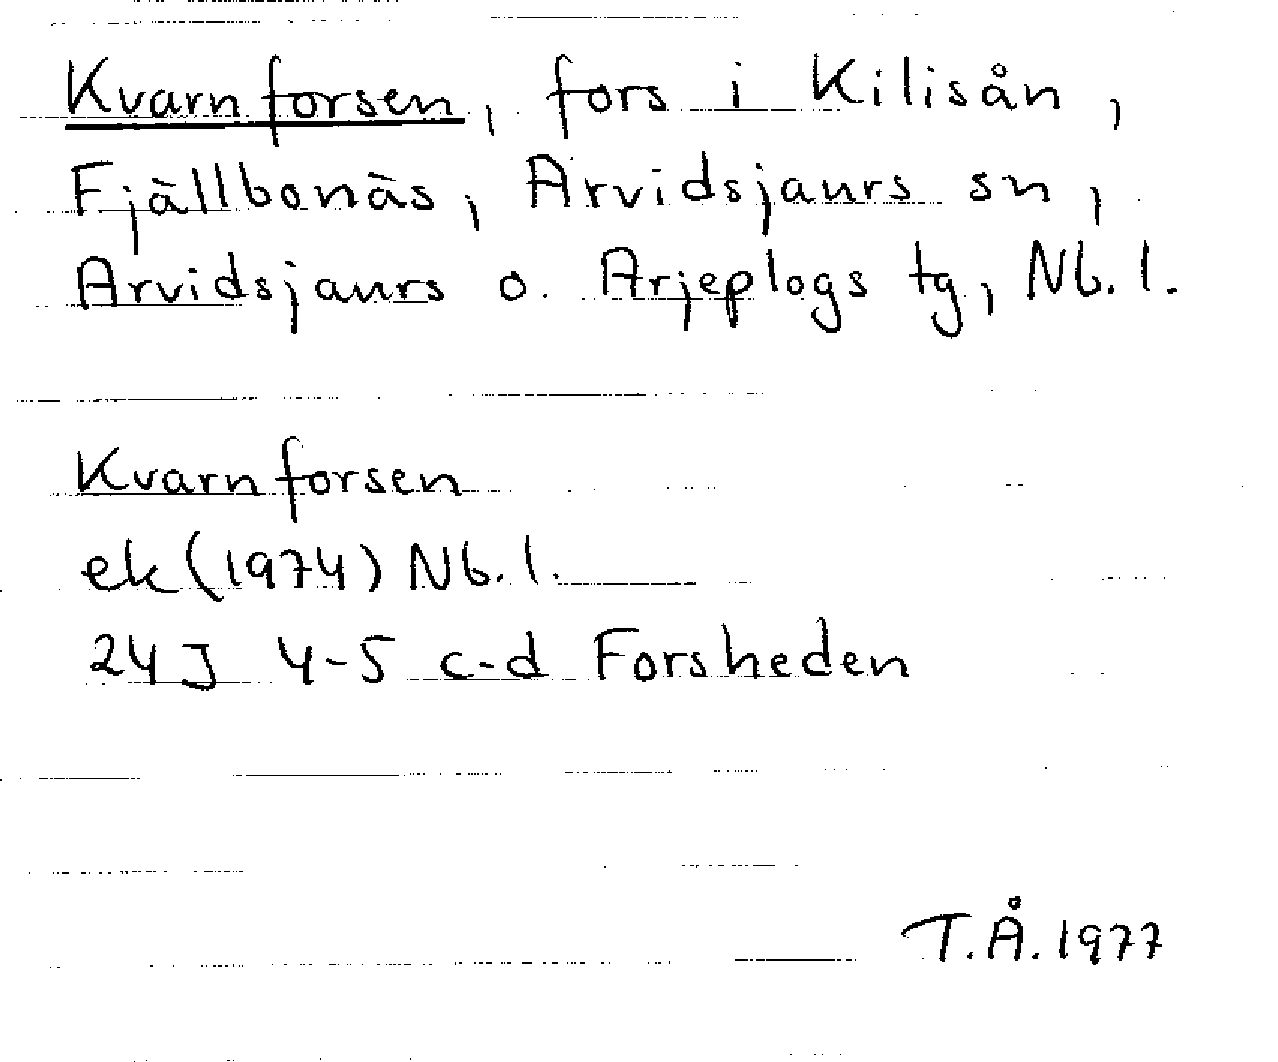 Kvarnforsen, fors i Kilisån,
Fjällbonäs, Arvidsjaurs sn,
Arvidsjaurs o. Arjeplogs tg, Nb. l.
Kvarnforsen
ek (1974) Nb. l.
24J 4-5 c-d Forsheden
T.Å. 1977